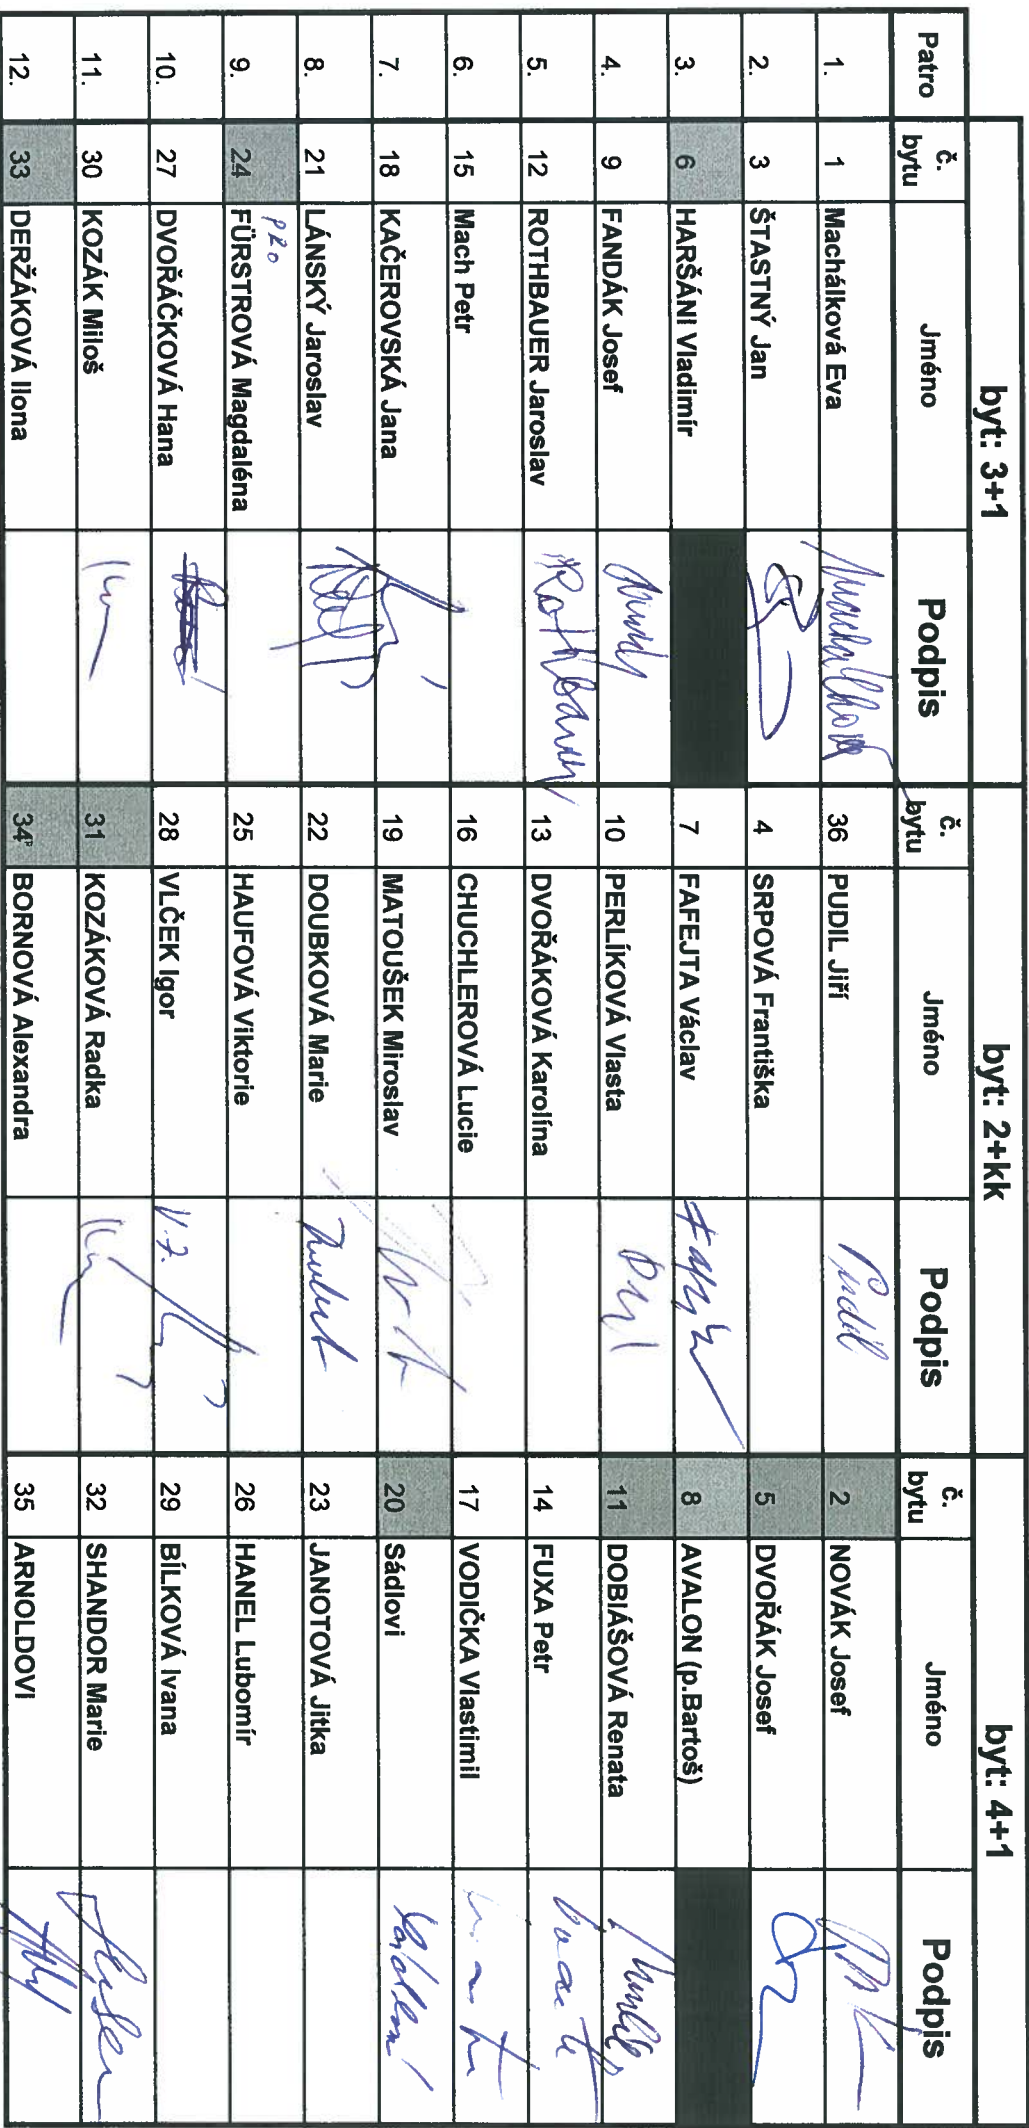 byt: 3+1 byt: 2+kk byt: 4+1
Patro č. bytu Jméno Podpis č. bytu Jméno Podpis č. bytu Jméno Podpis
1. 1 Machálková Eva 36 PUDIL Jiří Pudil 2 NOVÁK Josef
2. 3 ŠTASTNÝ Jan 4 SRPOVÁ Františka 5 DVOŘÁK Josef
3. 6 HARŠÁNI Vladimír 7 FAFEJTA Václav 8 AVALON (p.Bartoš)
4. 9 FANDÁK Josef 10 PERLÍKOVÁ Vlasta 11 DOBIÁŠOVÁ Renata
5. 12 ROTHBAUER Jaroslav Rothbauer 13 DVOŘÁKOVÁ Karolína 14 FUXA Petr
6. 15 Mach Petr 16 CHUCHLEROVÁ Lucie 17 VODIČKA Vlastimil
7. 18 KAČEROVSKÁ Jana 19 MATOUŠEK Miroslav 20 Sádlovi
8. 21 LÁNSKÝ Jaroslav 22 DOUBKOVÁ Marie 23 JANOTOVÁ Jitka
PRO
9. 24 FÜRSTROVÁ Magdaléna 25 HAUFOVÁ Viktorie 26 HANEL Lubomír
10. 27 DVOŘÁČKOVÁ Hana 28 VLČEK Igor 29 BÍLKOVÁ Ivana
11. 30 KOZÁK Miloš 31 KOZÁKOVÁ Radka 32 SHANDOR Marie
12. 33 DERŽÁKOVÁ Ilona 34 BORNOVÁ Alexandra 35 ARNOLDOVI